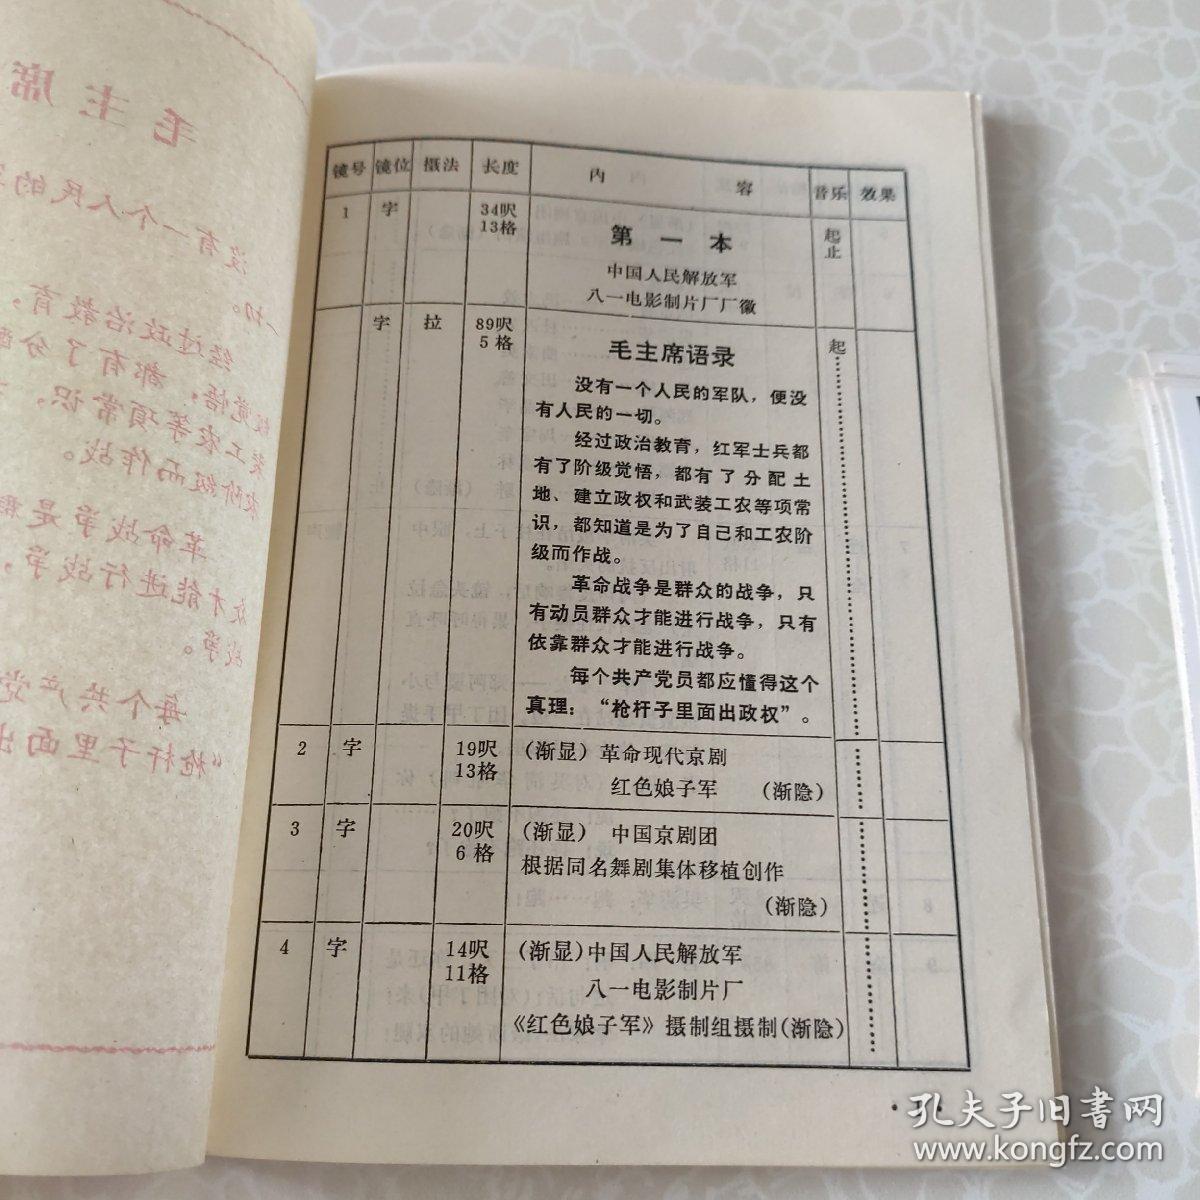 毛主席
没有一个人民的军
一切。
经过政治教育，
级觉悟，都有了分配
装工农等项常识。
农阶级而作战。
革命战争是群
众才能进行战争，
战争。
每个共产党
“枪杆子里面出
镜号 镜位 摄法 长度 内 容 音乐 效果
1 字 34呎 起
13格 第一本 止
中国人民解放军
八一电影制片厂厂徽
字 拉 89呎 起
5格 毛主席语录
没有一个人民的军队，便没
有人民的一切。
经过政治教育，红军士兵都
有了阶级觉悟，都有了分配土
地、建立政权和武装工农等项常
识，都知道是为了自己和工农阶
级而作战。
革命战争是群众的战争，只
有动员群众才能进行战争，只有
依靠群众才能进行战争。
每个共产党员都应懂得这个
真理：“枪杆子里面出政权”。
2 字 19呎 (渐显) 革命现代京剧
13格 红色娘子军 (渐隐)
3 字 20呎 (渐显) 中国京剧团
6格 根据同名舞剧集体移植创作
(渐隐)
4 字 14呎 (渐显)中国人民解放军
11格 八一电影制片厂
《红色娘子军》摄制组摄制(渐隐)
孔夫子旧书网
www.kongfz.com